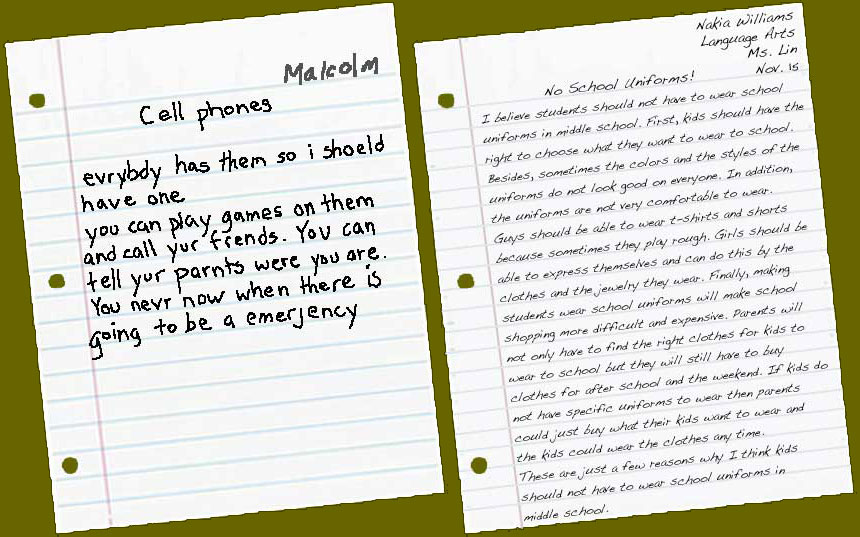 Malcolm
Cell phones
evrybdy has them so i shoeld
have one
you can play games on them
and call yur frends. You can
tell yur parnts were you are.
You nevr now when there is
going to be a emerjency
Nakia Williams
Language Arts
Ms. Lin
Nov. 15
No School Uniforms!
I believe students should not have to wear school
uniforms in middle school. First, kids should have the
right to choose what they want to wear to school.
Besides, sometimes the colors and the styles of the
uniforms do not look good on everyone. In addition,
the uniforms are not very comfortable to wear.
Guys should be able to wear t-shirts and shorts
because sometimes they play rough. Girls should be
able to express themselves and can do this by the
clothes and the jewelry they wear. Finally, making
students wear school uniforms will make school
shopping more difficult and expensive. Parents will
not only have to find the right clothes for kids to
wear to school but they will still have to buy
clothes for after school and the weekend. If kids do
not have specific uniforms to wear then parents
could just buy what their kids want to wear and
the kids could wear the clothes any time.
These are just a few reasons why I think kids
should not have to wear school uniforms in
middle school.